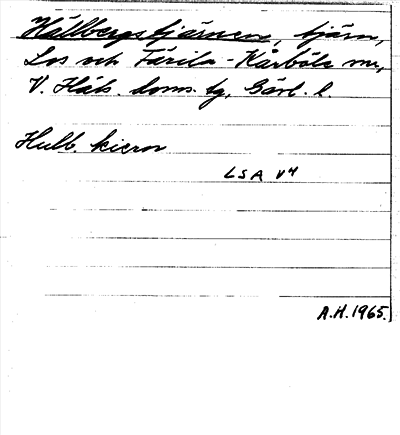 Hållbergstjärnen, tjärn,
Los och Färila-Kårböle snr,
V. Häls. doms. tg, Gävl. l.
Hulb. kieron
LSA V4
A.H. 1965.